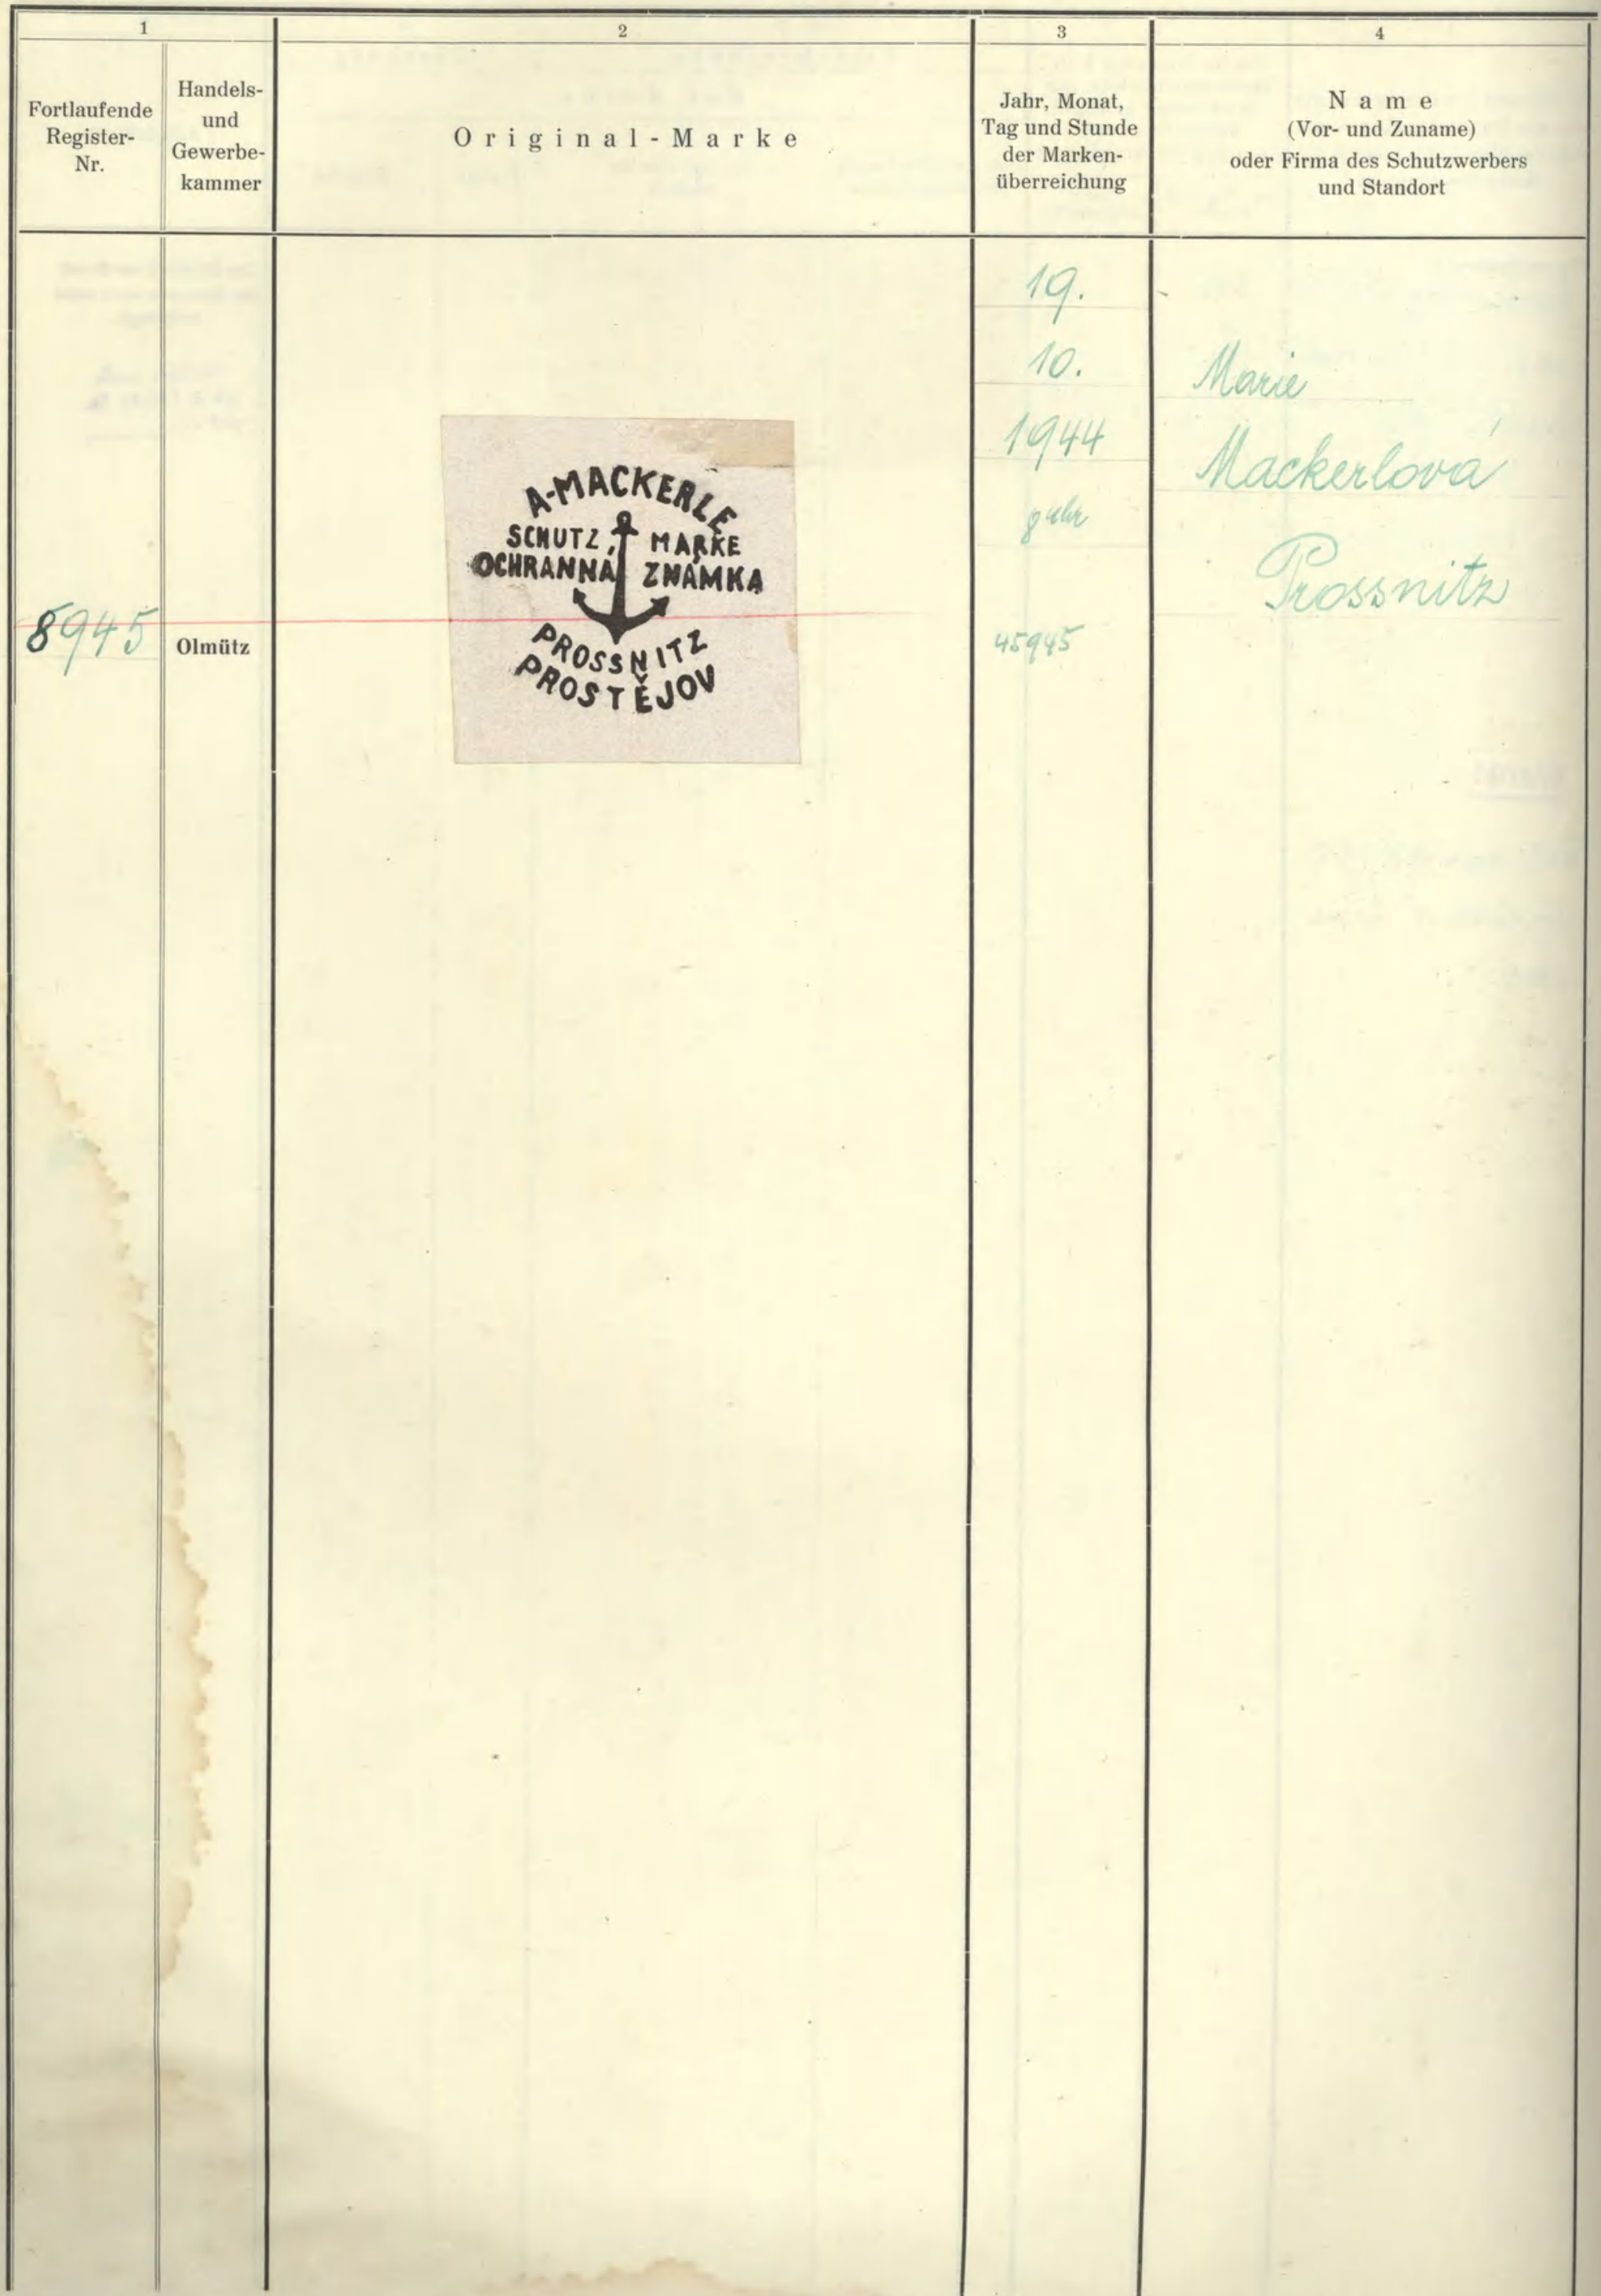 1
2
3
4
Fortlaufende
Register-
Nr.
Handels-
und
Gewerbe-
kammer
Original-Marke
Jahr, Monat,
Tag und Stunde
der Marken-
überreichung
Name
(Vor- und Zuname)
oder Firma des Schutzwerbers
und Standort
8945
Olmütz
A-MACKERLE
SCHUTZ MARKE
OCHRANNÁ ZNÁMKA
PROSSNITZ
PROSTĚJOV
19.
10.
1944
8 Uhr
45945
Marie
Mackerlová
Prossnitz